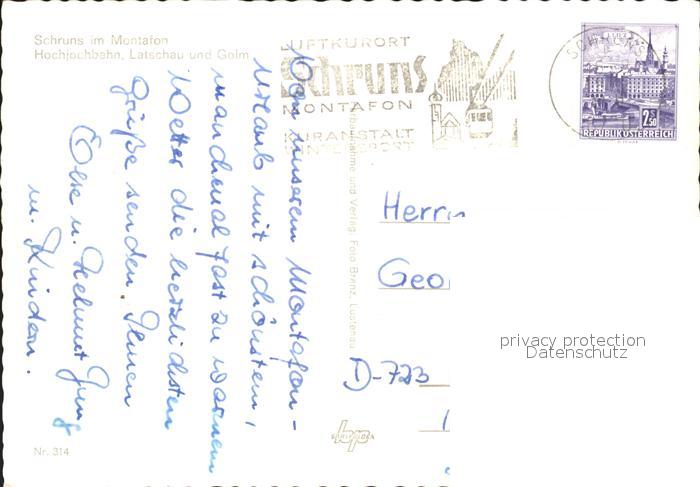 Schruns im Montafon
Hochjochbahn, Latschau und Golm
LUFTKURORT
Schruns
MONTAFON
KURANSTALT
WINTERSPORT
SCHRUNS
2.50
REPUBLIK ÖSTERREICH
Von unserem Montafon-
Urlaub mit schönsten,
manchmal fast zu warmem
Wetter die herzlichsten
Grüße senden Ihnen
Else u. Helmut Jung
m. Kindern.
Farbaufnahme und Verlag: Foto Branz, Lustenau
Herrn
Geo
D-723
privacy protection
Datenschutz
bp
Nr. 314